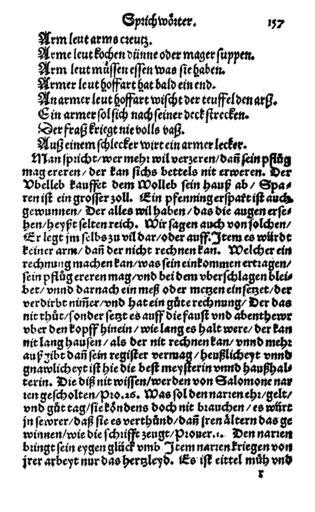 Sprichwörter. 157
Arm leut arms creutz.
Arme leut kochen dünne oder mager suppen.
Arm leut müssen essen was sie haben.
Armer leut hoffart hat bald ein end.
An armer leut hoffart wischt der teuffel den arß.
Ein armer sol sich nach seiner deck strecken.
Der fraß kriegt nie volls vaß.
Auß einem schlecker wirt ein armer lecker.
Man spricht/ wer mehr wil verzeren/ dañ sein pflůg
mag ereren/ der kan sichs bettels nit erweren. Der
Vbelleb kauffet dem Wolleb sein hauß ab/ Spa-
ren ist ein grosser zoll. Ein pfenning erspart ist auch
gewunnen/ Der alles wil haben/ das die augen erse-
hen/ heyßt selten reich. Wir sagen auch von solchen/
Er legt im selbs zu vil dar/ oder auff. Item es würdt
keiner arm/ dañ der nicht rechnen kan. Welcher ein
rechnung machen kan/ was sein einkommen ertragen/
sein pflůg ereren mag/ vnd bei dem vberschlagen blei-
bet/ vnnd darnach ein meß oder metzen einsetzet/ der
verdirbt nim̃er/ vnd hat ein gůte rechnung/ Der das
nit thůt/ sonder setzt es auff die faust vnd abenthewr
vber den kopff hinein/ wie lang es halt were/ der kan
nit lang hausen/ als der nit rechnen kan/ vnnd mehr
auß gibt dañ sein register vermag/ heußlicheyt vnnd
gnawlicheyt ist hie die best meysterin vnnd haußhal-
terin. Die diß nit wissen/ werden von Salomone nar
ren gescholten/ Pro.26. Was sol den narren ehr/ gelt/
vnd gůt tag/ sie köndens doch nit brauchen/ es würt
jn sewrer/ daß sie es verthůnd/ dañ jren ältern das ge
winnen/ wie die schrifft zeugt/ Prouer.1. Den narren
bringt sein eygen glück vmb Item narren kriegen von
jrer arbeyt nur das hertzleyd. Es ist eittel müh vnd
r